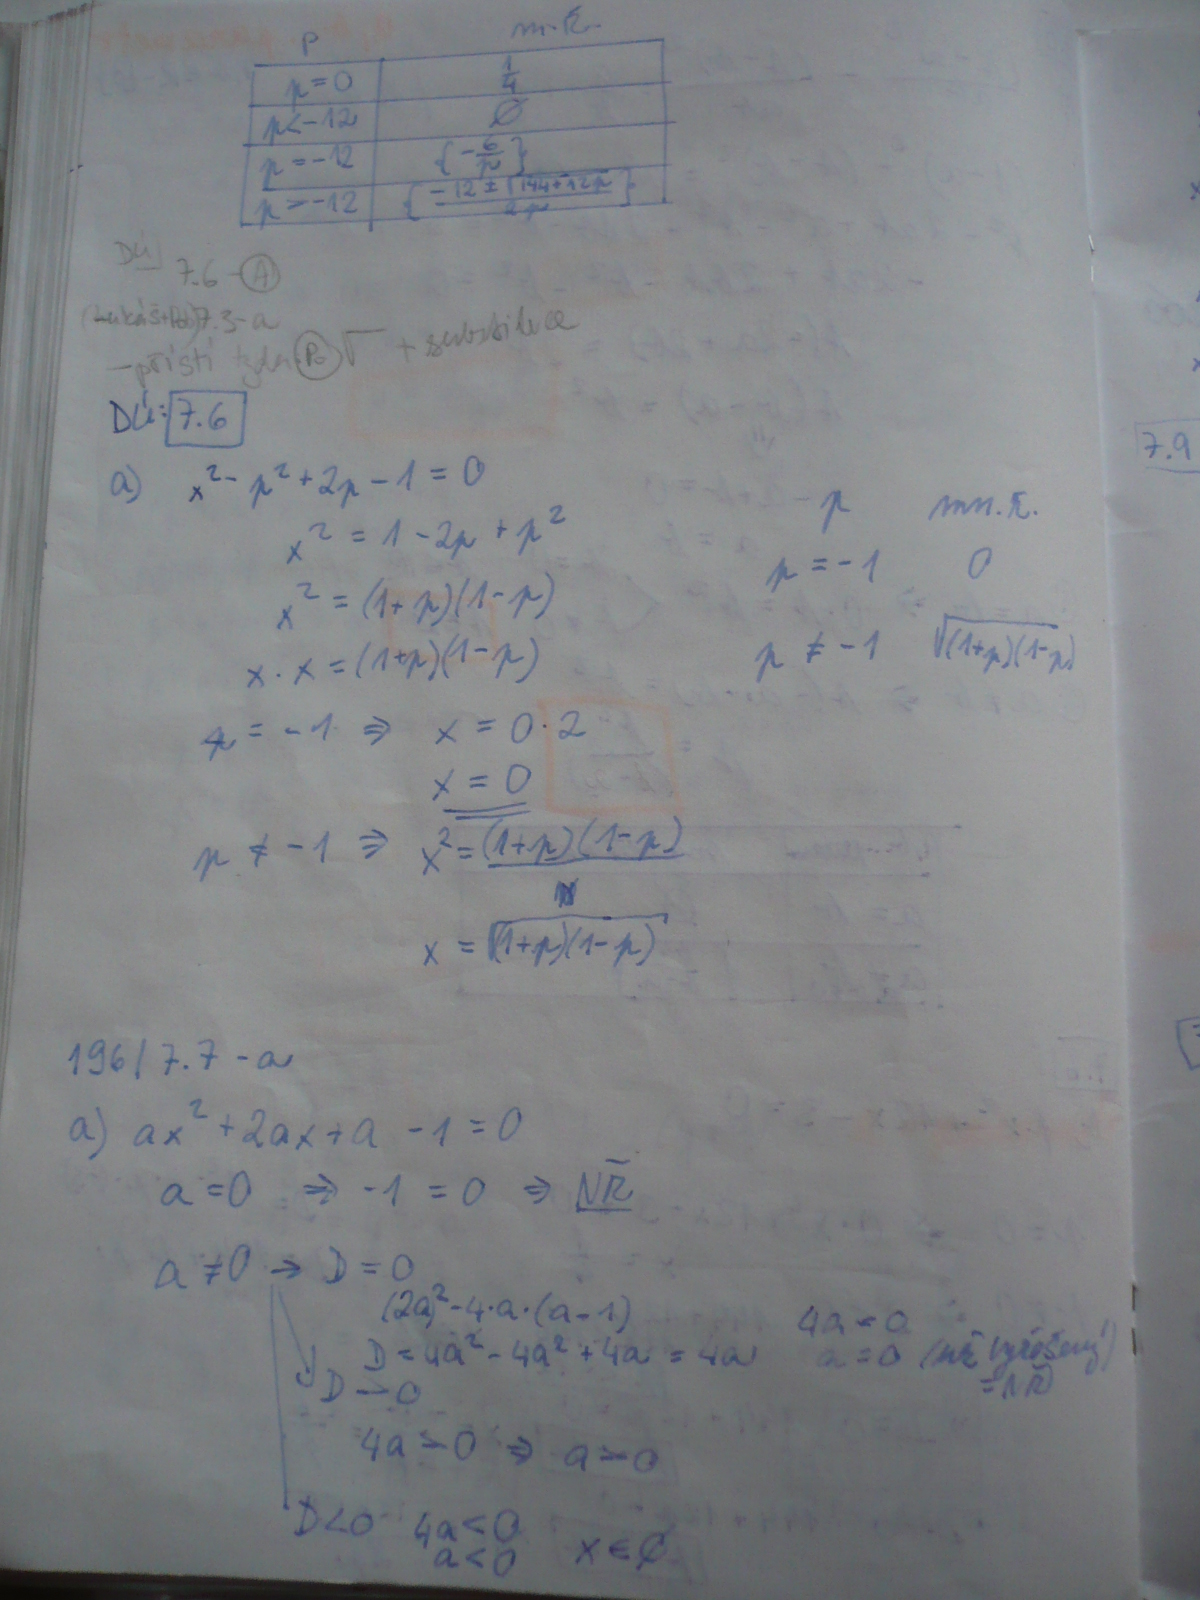 p m.ř.
p=0 1/4
p<-12 ∅
p=-12 {-6/p}
p>-12 {(-12±√(144+12p))/2p}
DÚ 7.6-Ⓐ
7.3-a
-příští + substituce
DÚ: 7.6
a) x²-p²+2p-1=0
x²=1-2p+p²
x²=(1+p)(1-p)
x·x=(1+p)(1-p)
p=-1 ⇒ x=0·2
x=0
p≠-1 ⇒ x²=(1+p)(1-p)
x=√(1+p)(1-p)
p mn.ř.
p=-1 0
p≠-1 √(1+p)(1-p)
196/7.7-a
a) ax²+2ax+a-1=0
a=0 ⇒ -1=0 ⇒ NŘ
a≠0 → D=0
(2a)²-4·a·(a-1) 4a=0
D=4a²-4a²+4a=4a a=0 (už vyřešený)
=NŘ
D>0
4a>0 ⇒ a>0
D<0 4a<0
a<0 x∈∅
7.9